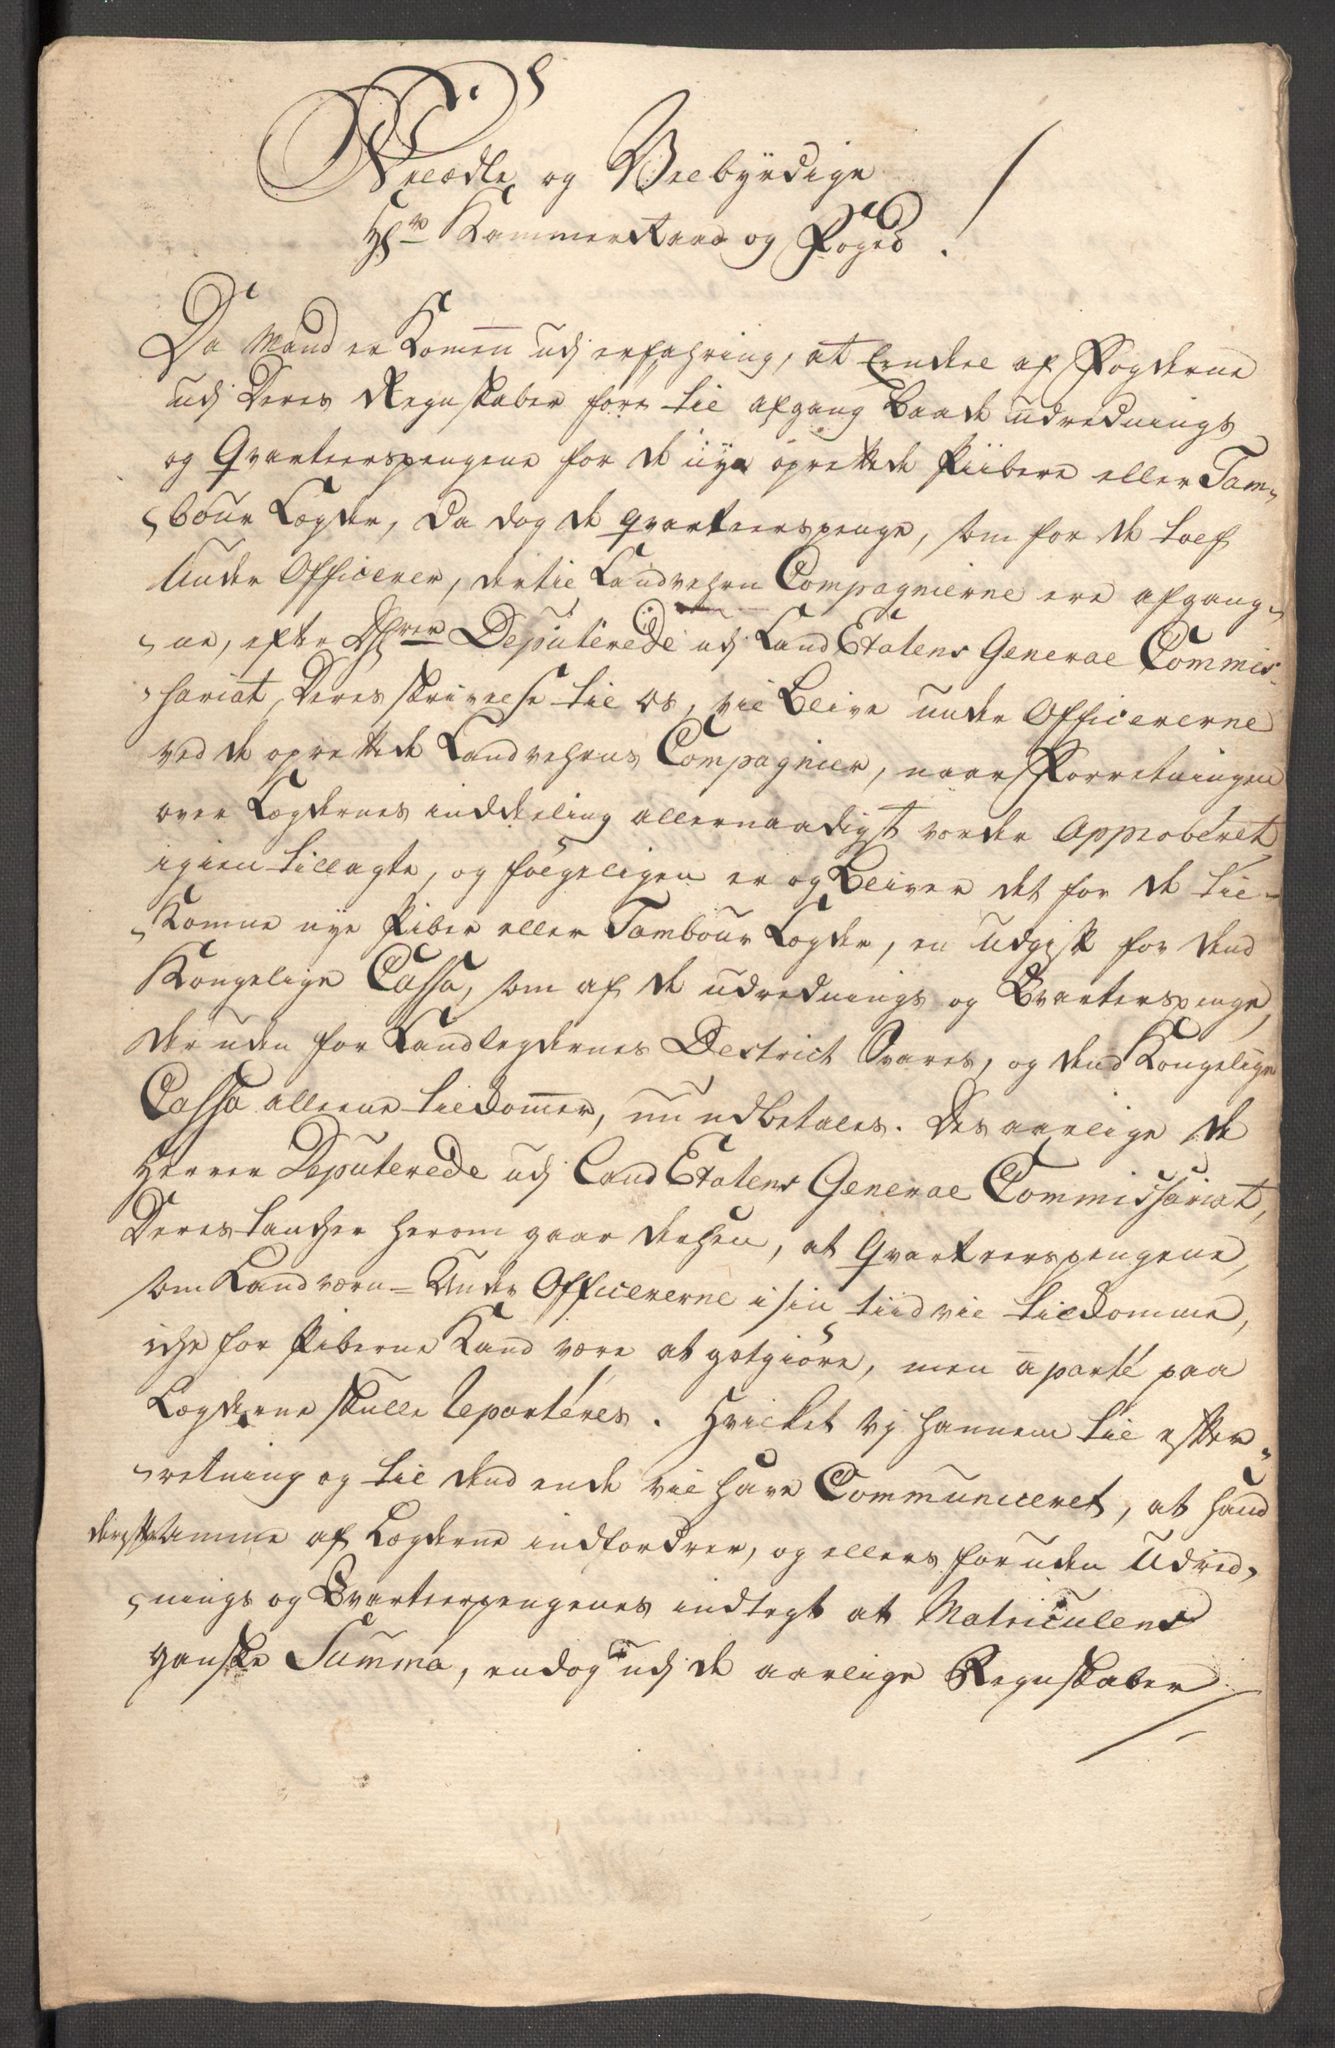 Velædle og Velbyrdige
Hr. Kammer Raad og Foged.
Da Mand er Komen udj erfahring, at Eendeel af Fogderne
udj Deres Regnskaber føre til afgang baade udrednings
og Qvarteerspengene for de nye oprettede Piibere eller Tam-
bour Lægder, Da dog de qvarteerspenge, som for de tolf
Under Officerer, der til Landvehrn Compagnierne ere afgang-
ne, efter Hrrer Deputerede udj Land Etatens General Commis-
sariat, Deres skrivelse til os, vil blive under Officererne
ved de oprettede Landvehrns Compagnier, naar Forretningen
over Lægdernes inddeeling allernaadigst vorder Approberet
igien tillagte, og følgeligen er og bliver det for de til-
Komne nye Piber eller Tambour Lægder, en udgift for dend
Kongelige Cassa, som af de udrednings og Qvarterspenge,
der uden for Landlegdernes District Svares, og dend Kongelige
Cassa alleene tilkommer, nu udbetales. Des aarlige de
Herrer Deputerede udj Land Etatens General Commissariat,
Deres tancker herom gaar derhen, at Qvarteerspengene,
som Landværn-Under Officererne i sin tiid vil tilkomme,
iche for Piberne Kand være at gotgiøre, men aparté paa
Lægderne skulle reparteres. Hvilcket vj hannem til efter-
retning og til dend ende vil have Communiceret, at hand
samme af Lægderne indfordrer, og ellers foruden Udred-
nings og Qvarteerpengenes indtegt at Matriculens
ganske Summa, endog udj de aarlige Regnskaber